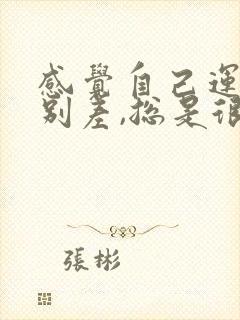 感覺自己運
别差,总是很
張彬